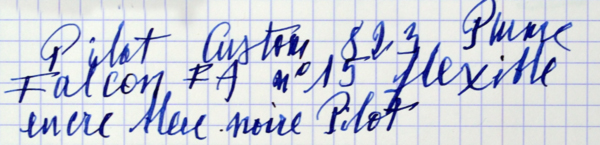 Pilot Custom 823 Plume
Falcon FA n°15 flexible
encre bleue noire Pilot